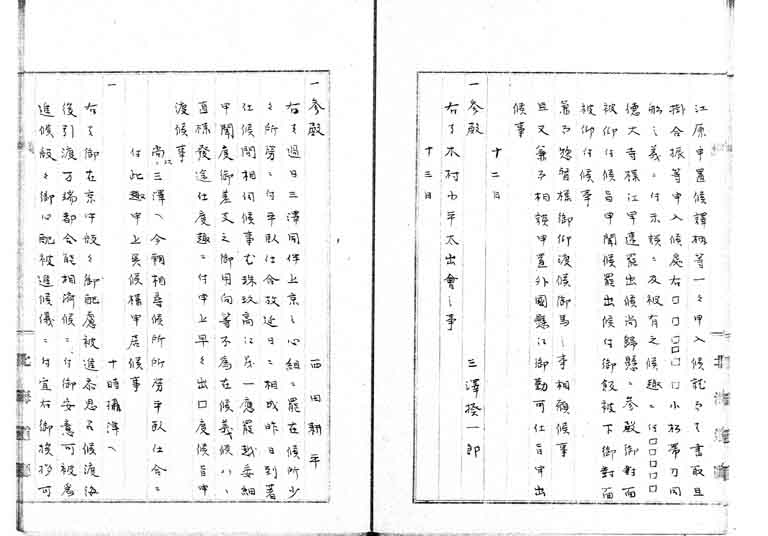 江原申置候譯柄等一々申入候就而者書取且
掛合振等申入候処右口口口口口口小杉帯刀同
船之義ニ付示談ニ及被有之候趣ニ付口口口口
德大寺様江申達罷出候尚歸懸ニ参殿御對面
被仰付候旨申聞候罷出候付御飯被下御對面
被仰付候事
兼而惣督様御仰渡候御馬之事相願候事
且又兼而相談申置外國懸江御勤可仕旨申出
候事
十二日
一参殿 三澤揆一郎
右者木村小平太出會之事
十三日
一参殿 西田耕平
右者過日三澤同伴上京之心組ニ罷在候所少
々所労ニ付平臥仕合故近日ニ相成昨日到着
仕候間相伺候事尤珠玖高江茂一應罷越委細
申聞度御差支之御用向等不為在候義候ハヽ
直様發途仕度趣ニ付申上早々出口度候旨申
渡候事
尚ニ三澤ヘ今朝相尋候所所労平臥仕合ニ
付此趣申上呉候様申居候事
一 十時攝津ヘ
右者御在京中段々御配慮被進忝思召候渡海
後引渡万端都合能相濟候ニ付御安意可被為
進候段々御心配被進候儀ニ付宜右御挨拶可